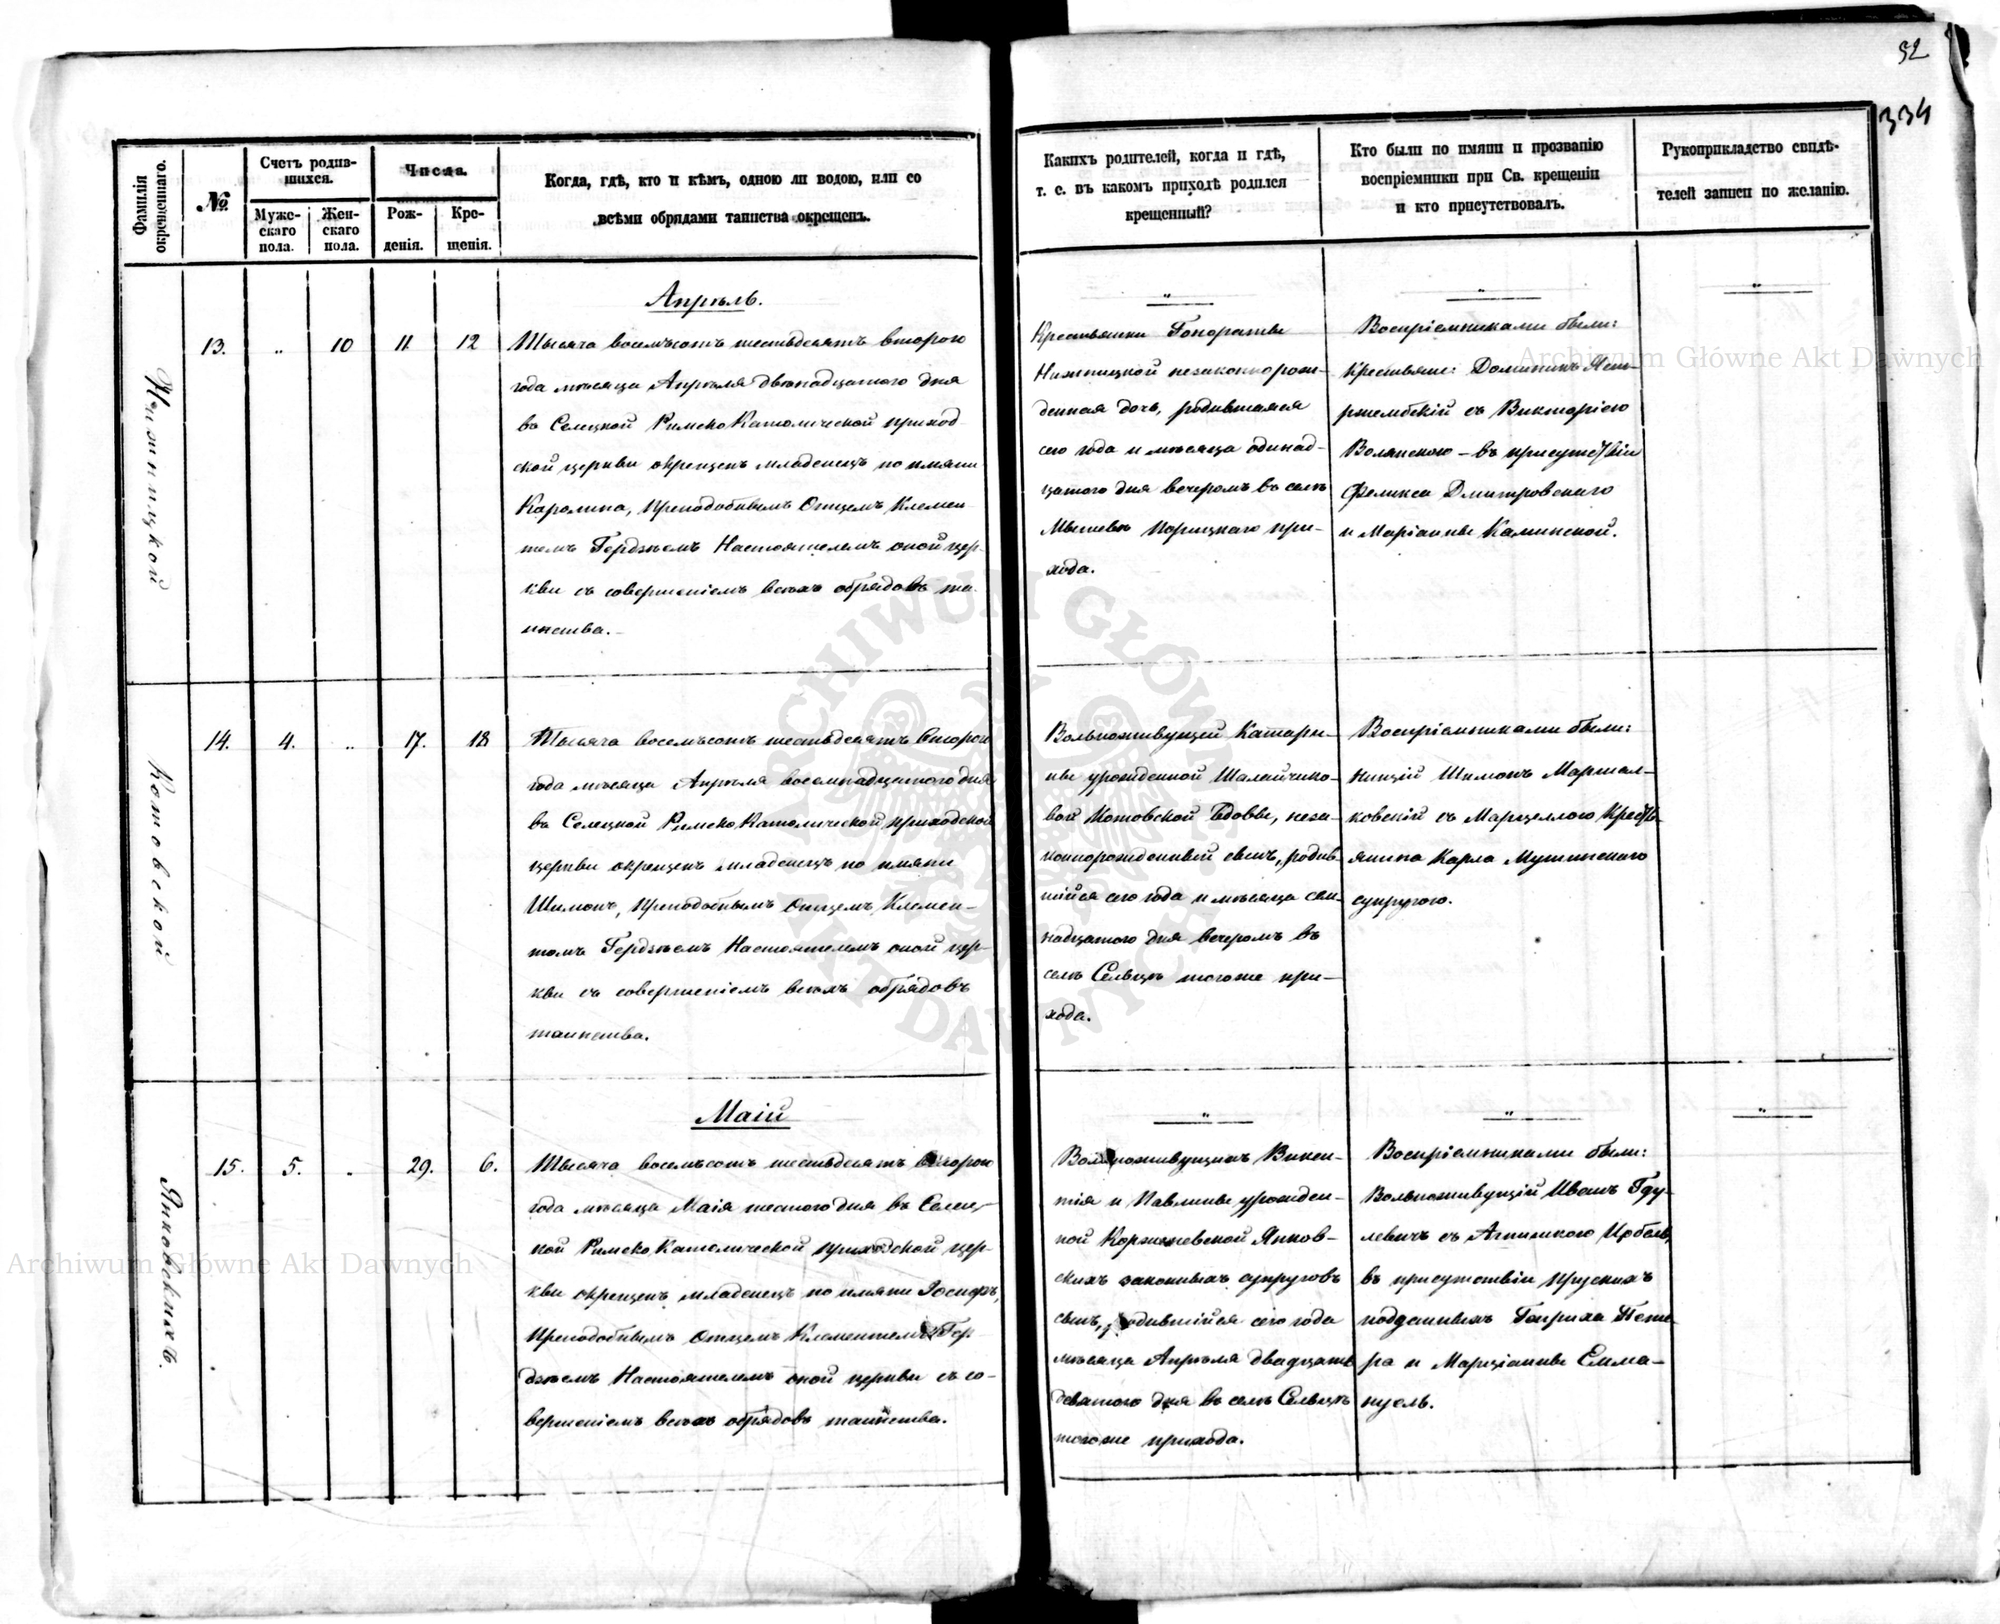 92
334
Фамилія окрещеннаго.
№
Счетъ родив-
шихся.
Муже-
скаго
пола.
Жен-
скаго
пола.
Числа.
Рож-
денія.
Кре-
щенія.
Когда, гдѣ, кто и кѣмъ, одною ли водою, или со
всѣми обрядами таинства окрещенъ.
Какихъ родителей, когда и гдѣ,
т. е. въ какомъ приходѣ родился
крещенный?
Кто были по имяни и прозванію
воспріемники при Св. крещеніи
и кто присутствовалъ.
Рукоприкладство свидѣ-
телей записи по желанію.
Апрѣль.
13. „ 10 11. 12
Тысяча восемъсотъ шестьдесятъ втораго
года мѣсяца Апрѣля двѣнадцатаго дня
въ Селецкой Римско Католической приход-
ской церкви окрещенъ младенецъ по имяни
Каролина, Преподобнымъ Отцемъ Клемен-
темъ Настоятелемъ оной цер-
кви съ совершеніемъ всѣхъ обрядовъ та-
инства.
Крестьянки Гонораты
незаконнорож-
денная дочь, родившаяся
сего года и мѣсяца одинад-
цатого дня вечеромъ въ селѣ
Порицкаго при-
хода.
Воспріемниками были:
Крестьяне: Доминикъ Яст-
ржембскій съ Викторіею
Волянскою – въ присутствіи
Феликса Дмитровскаго
и Маріанны Каминской.
14. 4. „ 17. 18
Котовской
Тысяча восемъсотъ шестьдесятъ втораго
года мѣсяца Апрѣля восемнадцатаго дня
въ Селецкой Римско Католической приходской
церкви окрещенъ младенецъ по имяни
Шимонъ, Преподобнымъ Отцемъ Клемен-
темъ Настоятелемъ оной цер-
кви съ совершеніемъ всѣхъ обрядовъ
таинства.
Вольноживущей Катари-
ны урожденной
Котовской Вдовы, неза-
коннорожденный сынъ, родив-
шійся сего года и мѣсяца сем-
надцатого дня вечеромъ въ
селѣ Сельцѣ тогоже при-
хода.
Воспріемниками были:
Нищій Шимонъ Маршал-
ковскій съ Марцеллою Кресть-
янина Карла
супругою.
Маій
15. 5. „ 29. 6.
Янковскихъ.
Тысяча восемъсотъ шестьдесятъ втораго
года мѣсяца Маія шестого дня въ Селец-
кой Римско Католической приходской цер-
кви окрещенъ младенецъ по имяни Іосифъ,
Преподобнымъ Отцемъ Клементемъ
Настоятелемъ оной церкви съ со-
вершеніемъ всѣхъ обрядовъ таинства.
Вольноживущихъ Викен-
тія и Павлины урожден-
ной Янков-
скихъ законныхъ супруговъ
сынъ, родившійся сего года
мѣсяца Апрѣля двадцать
девятого дня въ селѣ Сельцѣ
тогоже прихода.
Воспріемниками были:
Вольноживущій Иванъ Гду-
левичъ съ
въ присутствіи Прускихъ
подданныхъ Генриха Пете-
ра и Марціанны Емма-
нуель.
Archiwum Główne Akt Dawnych
Archiwum Główne Akt Dawnych
ARCHIWUM GŁÓWNE AKT DAWNYCH